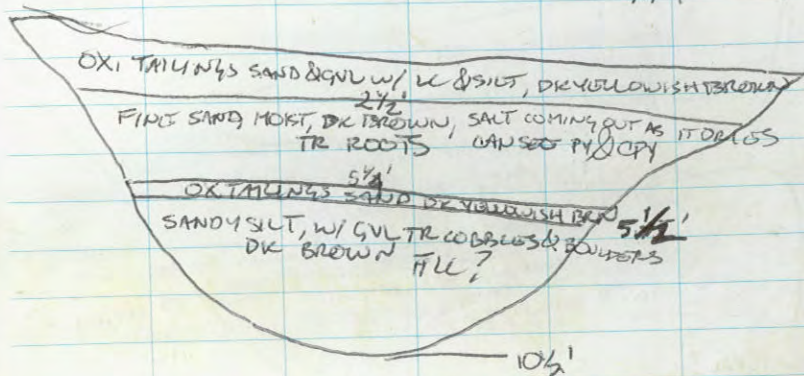 OXI TAILINGS SAND & GVL W/ LC & SILT, DK YELLOWISH BROWN
2 1/2'
FINE SAND, MOIST, DK BROWN, SALT COMING OUT AS IT DRIES
TR ROOTS CAN SEE PY & CPY
5 1/4'
OX TAILINGS SAND DK YELLOWISH BRN
5 1/2'
SANDY SILT, W/ GVL TR COBBLES & BOULDERS
DK BROWN
?
10 1/2'